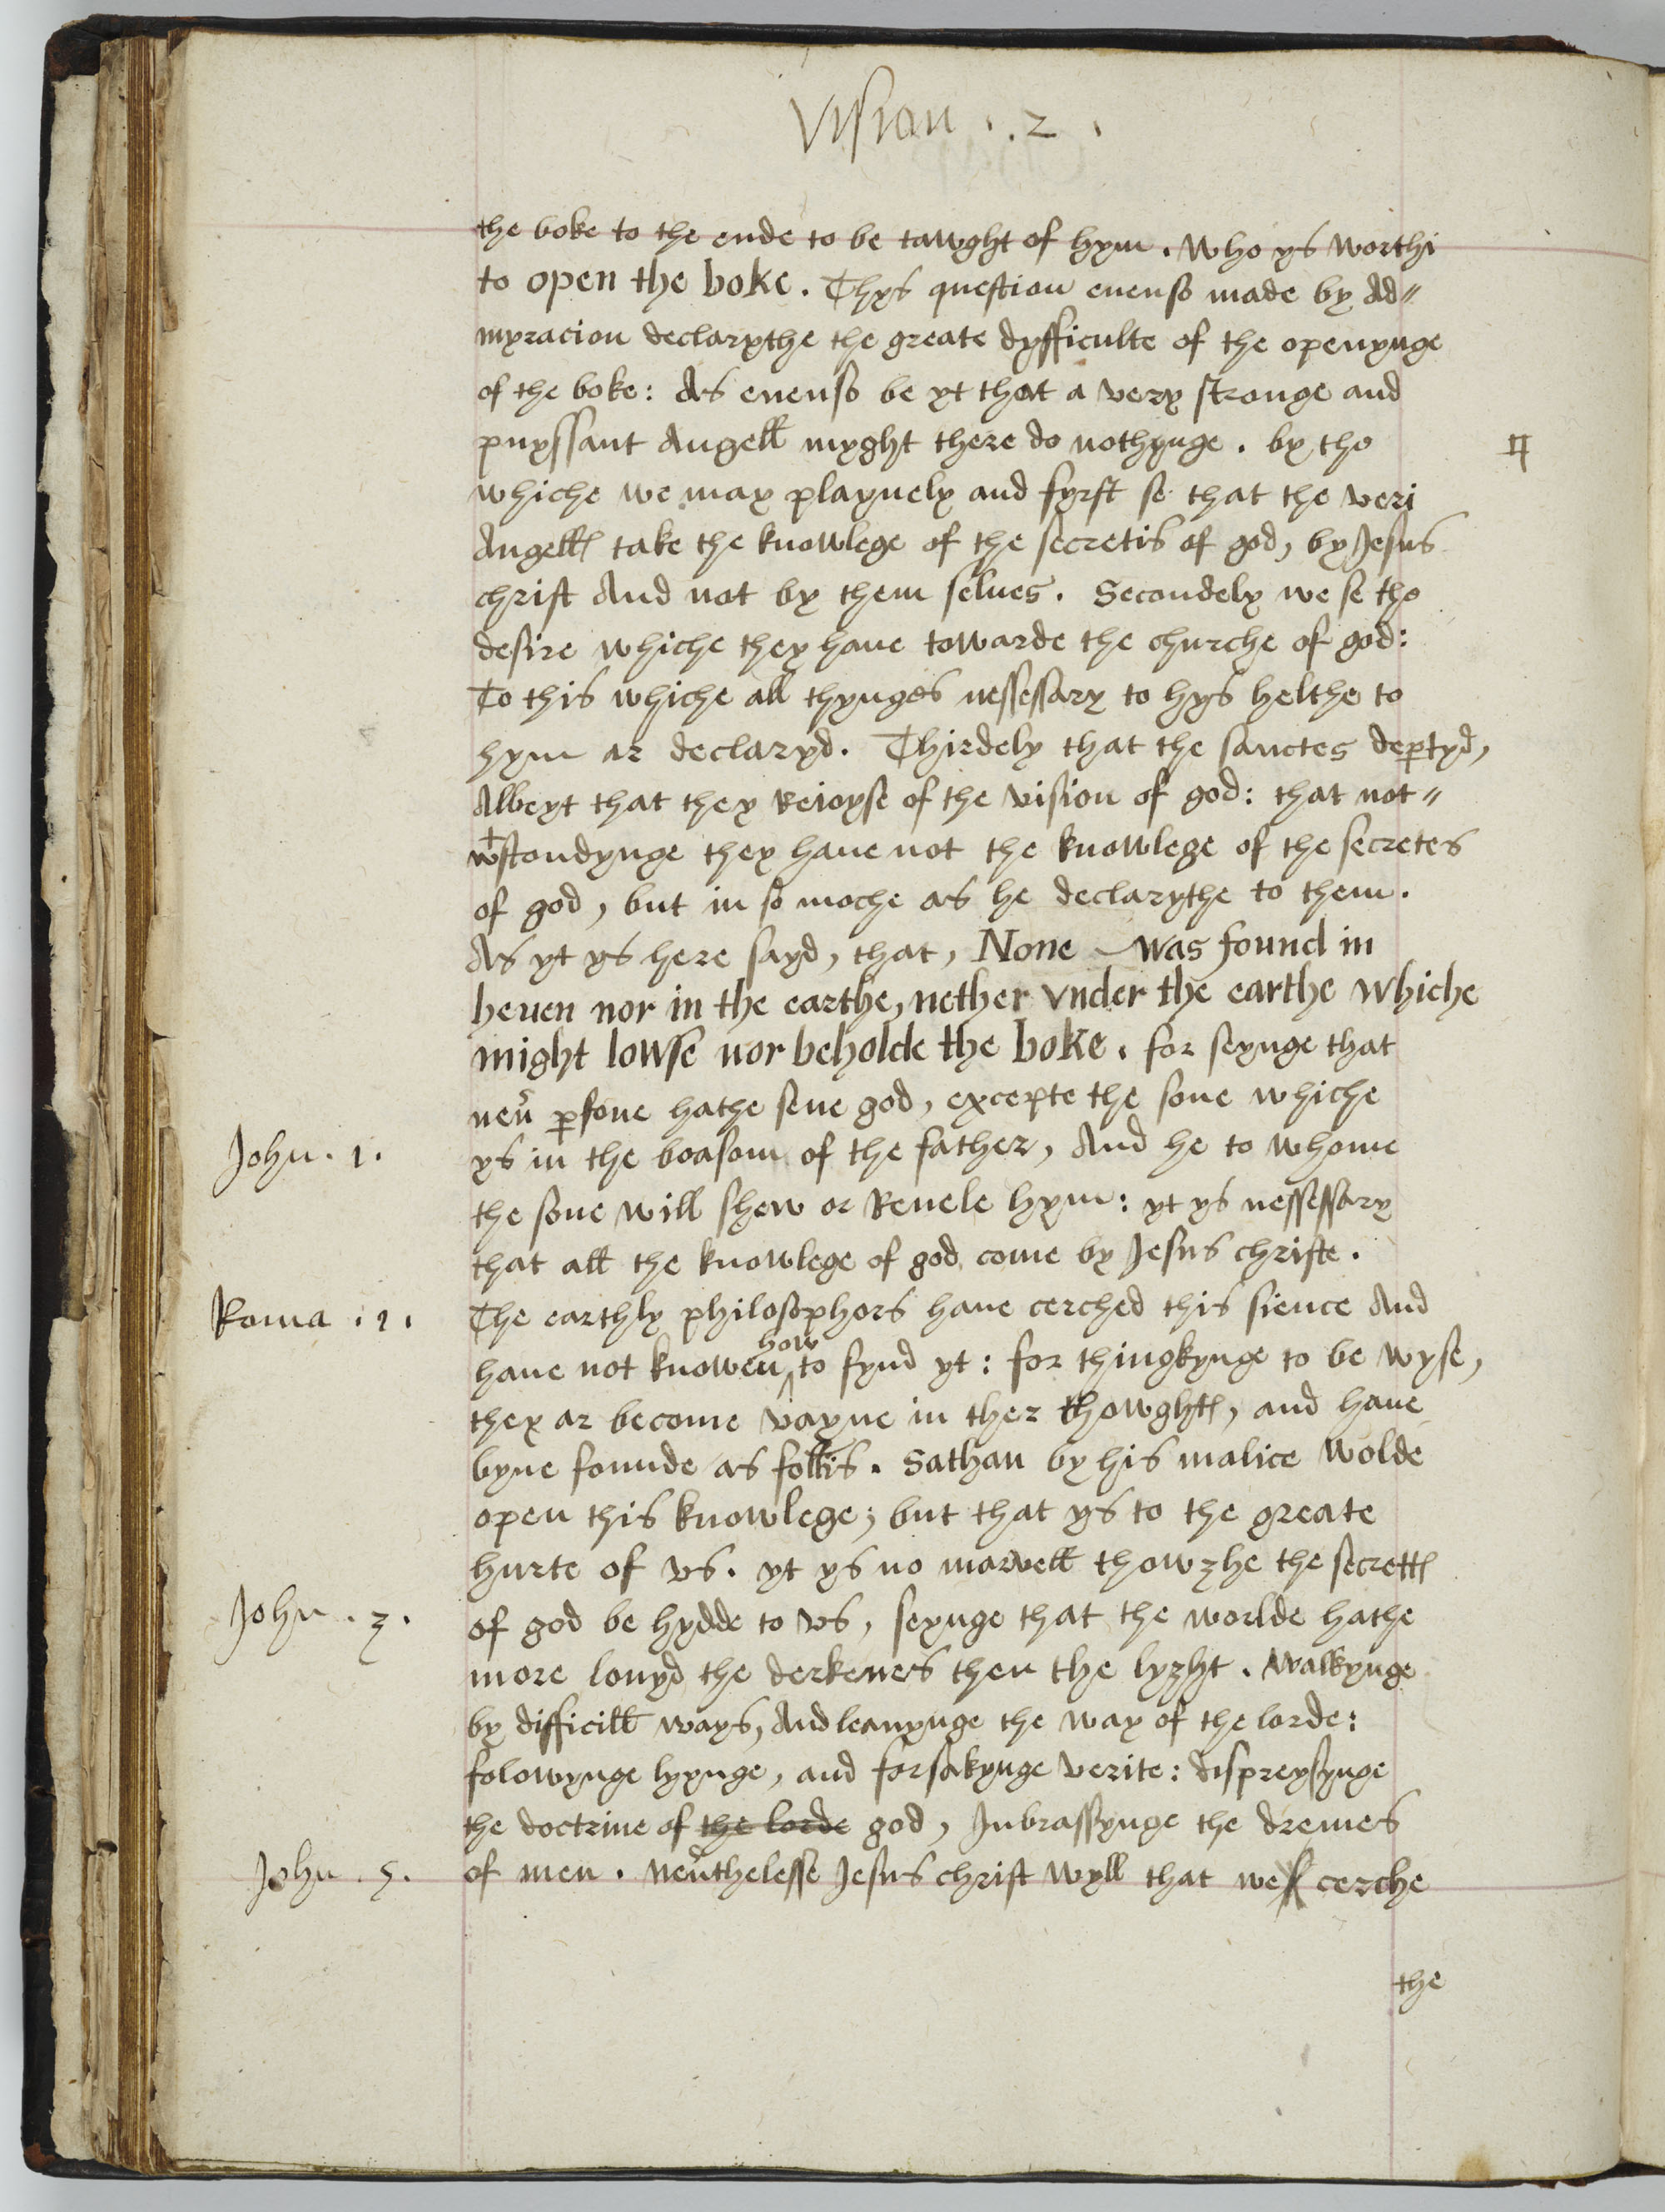 Vision . 2 .
the boke to the ende to be tawght of hym . Who ys worthi
to open the boke . Thys question euenso made by ad〃
myracion declarythe the greate dyfficulte of the openynge
of the boke : As euenso be yt that a very stronge and
puyssant Angell myght there do nothynge . by the
whiche we may playnely and fyrst se that the veri
Angellꝭ take the knowlege of the secretis of god , by Jesus
christ And not by them selues . Secondely we se the
desire whiche they haue towarde the churche of god :
To this whiche all thynges nessessary to hys helthe to
hym ar declaryd . Thirdely that the sanctes deꝑtyd ,
Albeyt that they Reioyse of the vision of god : that not〃
wᵗstondynge they haue not the knowlege of the secretes
of god , but in so moche as he declarythe to them .
As yt ys here sayd , that , None was found in
heuen nor in the earthe , nether vnder the earthe whiche
might lowse nor beholde the boke . for seynge that
neu̕ ꝑsone hathe sene god , excepte the sone whiche
John . 1 .
ys in the boasom of the father , And he to whome
the sone will shew or Reuele hym : yt ys nessessary
that all the knowlege of god come by Jesus christe .
Roma . 1 .
The earthly philosophors haue cerched this sience And
haue not knowen ^how to fynd yt : for thingkynge to be wyse ,
they ar become vayne in ther thowghtꝭ , and haue
byne founde as follis . Sathan by his malice wolde
open this knowlege ; but that ys to the greate
hurte of vs . yt ys no marvell thowȝhe the secrettꝭ
John . 3 .
of god be hydde to vs , seynge that the worlde hathe
more louyd the derkenes then the lyȝht . Walkynge
by difficill ways , And leauynge the way of the lorde :
folowynge lyynge , and forsakynge verite : dispreysynge
the doctrine of the lorde god , Inbrassynge the dremes
John . 5 .
of men . neu̕thelesse Jesus christ wyll that we cerche
the